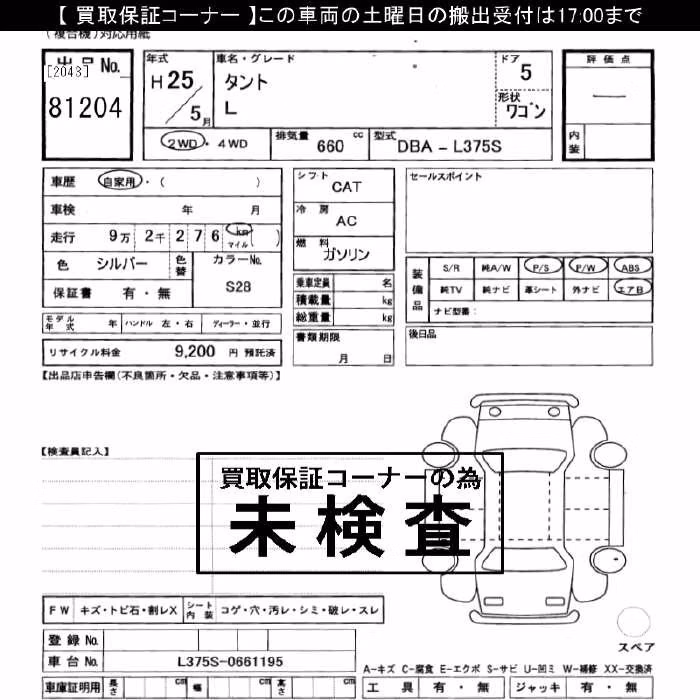 【 買取保証コーナー 】この車両の土曜日の搬出受付は17:00まで
(複合機)対応用紙
出品 No.
[2043]
81204
年式
H25
5月
車名・グレード
タント
L
ドア
5
形状
ワゴン
2WD・4WD
排気量 660 cc
型式 DBA - L375S
評価点
―
内装
車歴 自家用・( )
車検 年 月
走行 9万 2千 2 7 6 km マイル ( )
色 シルバー 色替 カラーNo.
保証書 有・無 S28
モデル年式 年 ハンドル 左・右 ディーラー・並行
リサイクル料金 9,200 円 預託済
シフト
CAT
冷房
AC
燃料
ガソリン
乗車定員 名
積載量 kg
総重量 kg
書類期限
月 日
セールスポイント
装備品
S/R 純A/W P/S P/W ABS
純TV 純ナビ 革シート 外ナビ エアB
ナビ型番:
後日品
【出品店申告欄(不良箇所・欠品・注意事項等)】
【検査員記入】
買取保証コーナーの為
未検査
FW キズ・トビ石・割レX シート内装 コゲ・穴・汚レ・シミ・破レ・スレ
登録 No.
車台 No. L375S-0661195
車庫証明用 長さ cm 幅 cm 高さ cm
スペア
A-キズ C-腐食 E-エクボ S-サビ U-凹ミ W-補修 XX-交換済
工具 有・無 ジャッキ 有・無